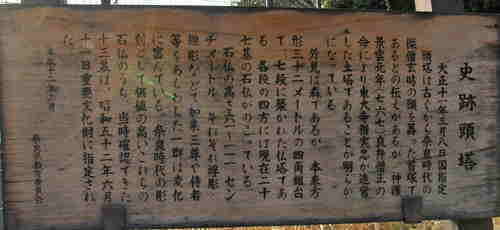 史跡頭塔
大正十一年三月八日国指定
頭塔は古くから奈良時代の
僧玄昉の頭を葬った墓塚で
あるとの伝えがあるが 神護
景雲元年(七六七)良弁僧正の
命により東大寺僧実忠が造営
した土塔であることが明らか
になっている
外見は森であるが 本来方
形三十二メートルの四角錐台
で 七段に築かれた仏塔であ
る 各段の四方には現在二十
七基の石仏がのこっている
石仏の高さ六一~一一一セン
チメートル それぞれ線彫
線彫などで如来三尊や侍者
等をあらわした 群は変化
に富んでいる 奈良時代の彫
刻として価値の高いこれらの
石仏のうち 当時確認できた
十三基は 昭和五十二年六月
十一日重要文化財に指定され
た
奈良県教育委員会